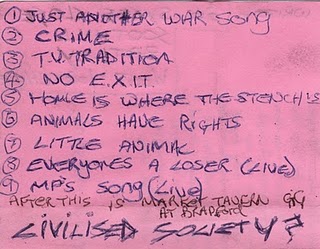 ① JUST ANOTHER WAR SONG
② CRIME
③ T.V. TRADITION
④ NO E.X.I.T.
⑤ HOME IS WHERE THE STENCH IS
⑥ ANIMALS HAVE RIGHTS
⑦ LITTLE ANIMAL
⑧ EVERYONES A LOSER (LIVE)
⑨ MP'S SONG (LIVE)
AFTER THIS IS MARKET TAVERN GIG
AT BRADFORD
CIVILISED SOCIETY?